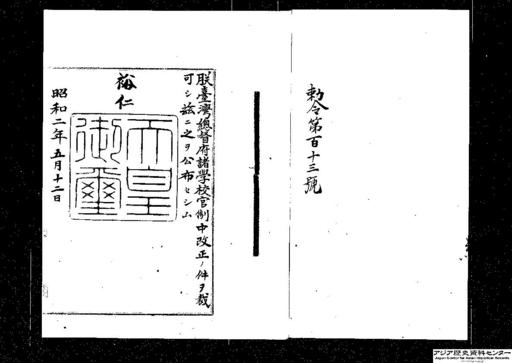 勅令第百十三號
朕臺灣總督府諸學校官制中改正ノ件ヲ裁
可シ茲ニ之ヲ公布セシム
裕仁
天皇
御璽
昭和二年五月十二日
アジア歴史資料センター
Japan Center for Asian Historical Records